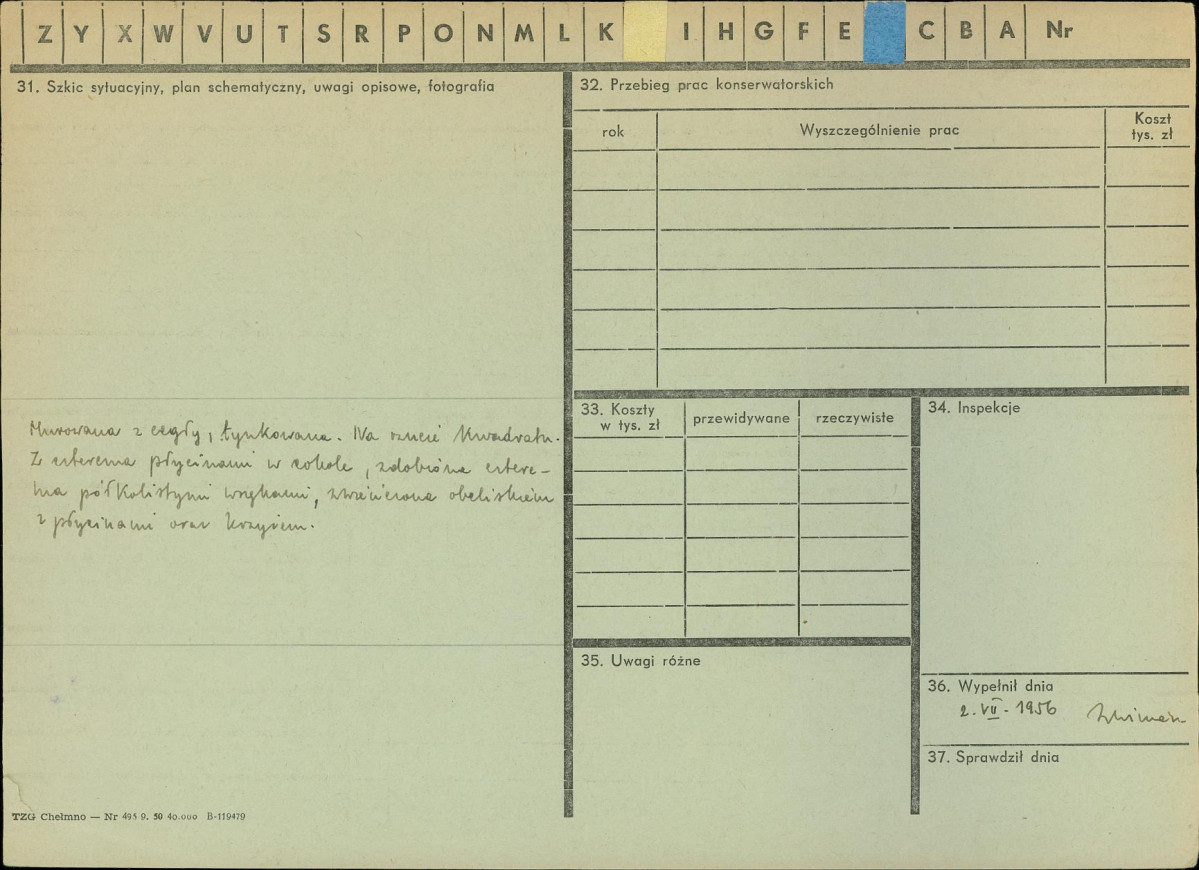 Z Y X W V U T S R P O N M L K I H G F E C B A Nr
31. Szkic sytuacyjny, plan schematyczny, uwagi opisowe, fotografia
Murowana z cegły, tynkowana. Na rzucie kwadratu.
Z czterema płycinami w cokole, zdobiona cztere-
ma półkolistymi wnękami, zwieńczona obeliskiem
z płycinami oraz krzyżem.
TZG Chełmno — Nr 495 9. 50 40.000 B-119479
32. Przebieg prac konserwatorskich
rok
Wyszczególnienie prac
Koszt
tys. zł
33. Koszty
w tys. zł
przewidywane
rzeczywiste
34. Inspekcje
35. Uwagi różne
36. Wypełnił dnia
2. VII. 1956
37. Sprawdził dnia